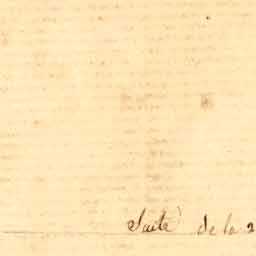 Suite de la 2